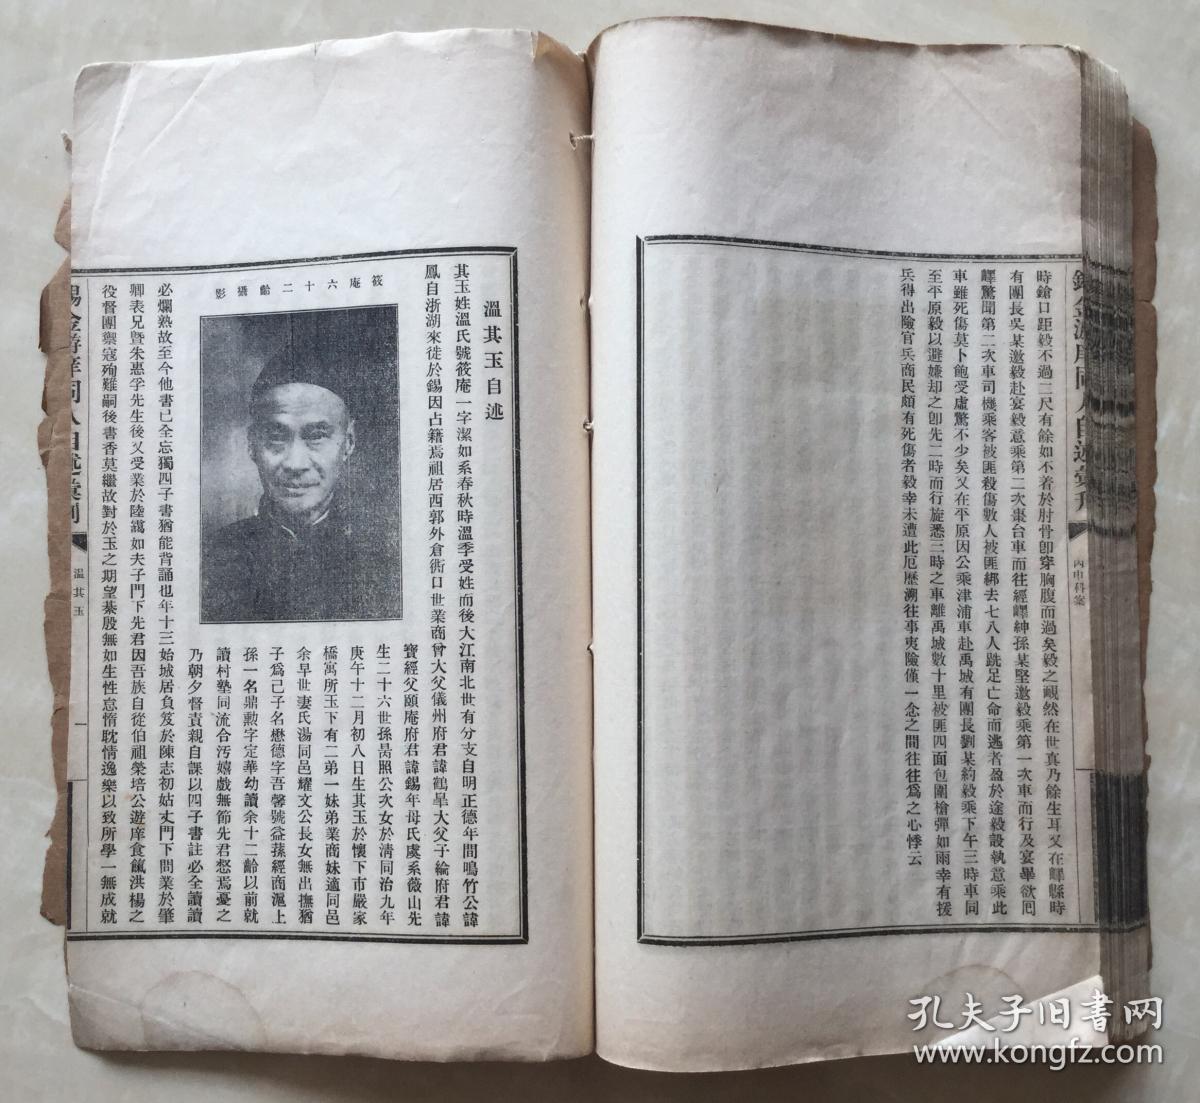 錫金游庠同人自述彙刊
丙申科案
時鎗口距毅不過二尺有餘如不着於肘骨卽穿胸腹而過矣毅之覥然在世真乃餘生耳又在嶧縣時
有團長吳某邀毅赴宴毅意乘第二次棗台車而往經嶧紳孫某堅邀毅乘第一次車而行及宴畢欲回
嶧驚聞第二次車司機乘客被匪殺傷數人被匪綁去七八人跣足亡命而逃者盈於途毅設執意乘此
車雖死傷莫卜飽受虛驚不少矣又在平原因公乘津浦車赴禹城有團長劉某約毅乘下午三時車同
至平原毅以避嫌却之卽先二時而行旋悉三時之車離禹城數十里被匪四面包圍槍彈如雨幸有援
兵得出險官兵商民頗有死傷者毅幸未遭此厄歷溯往事夷險僅一念之間往往爲之心悸云
溫其玉自述
其玉姓溫氏號筱庵一字潔如系春秋時溫季受姓而後大江南北世有分支自明正德年間鳴竹公諱
鳳自浙湖來徙於錫因占籍焉祖居西郭外倉衖口世業商曾大父儀州府君諱鶴皐大父子綸府君諱
筱庵六十二齡攝影
寶經父頤庵府君諱錫年母氏虞系薇山先
生二十六世孫昺照公次女於淸同治九年
庚午十二月初八日生其玉於懷下市嚴家
橋寓所玉下有二弟一妹弟業商妹適同邑
余早世妻氏湯同邑耀文公長女無出撫猶
子爲己子名懋德字吾馨號益蓀經商滬上
孫一名鼎勲字定華幼讀余十二齡以前就
讀村塾同流合汚嬉戲無節先君惄焉憂之
乃朝夕督責親自課以四子書註必全讀讀
必爛熟故至今他書已全忘獨四子書猶能背誦也年十三始城居負笈於陳志初姑丈門下問業於肇
卿表兄曁朱惠孚先生後又受業於陸藹如夫子門下先君因吾族自從伯祖榮培公遊庠食餼洪楊之
役督團禦寇殉難嗣後書香莫繼故對於玉之期望綦殷無如生性怠惰耽情逸樂以致所學一無成就
錫金游庠同人自述彙刊
溫其玉
一
孔夫子旧書网
www.kongfz.com